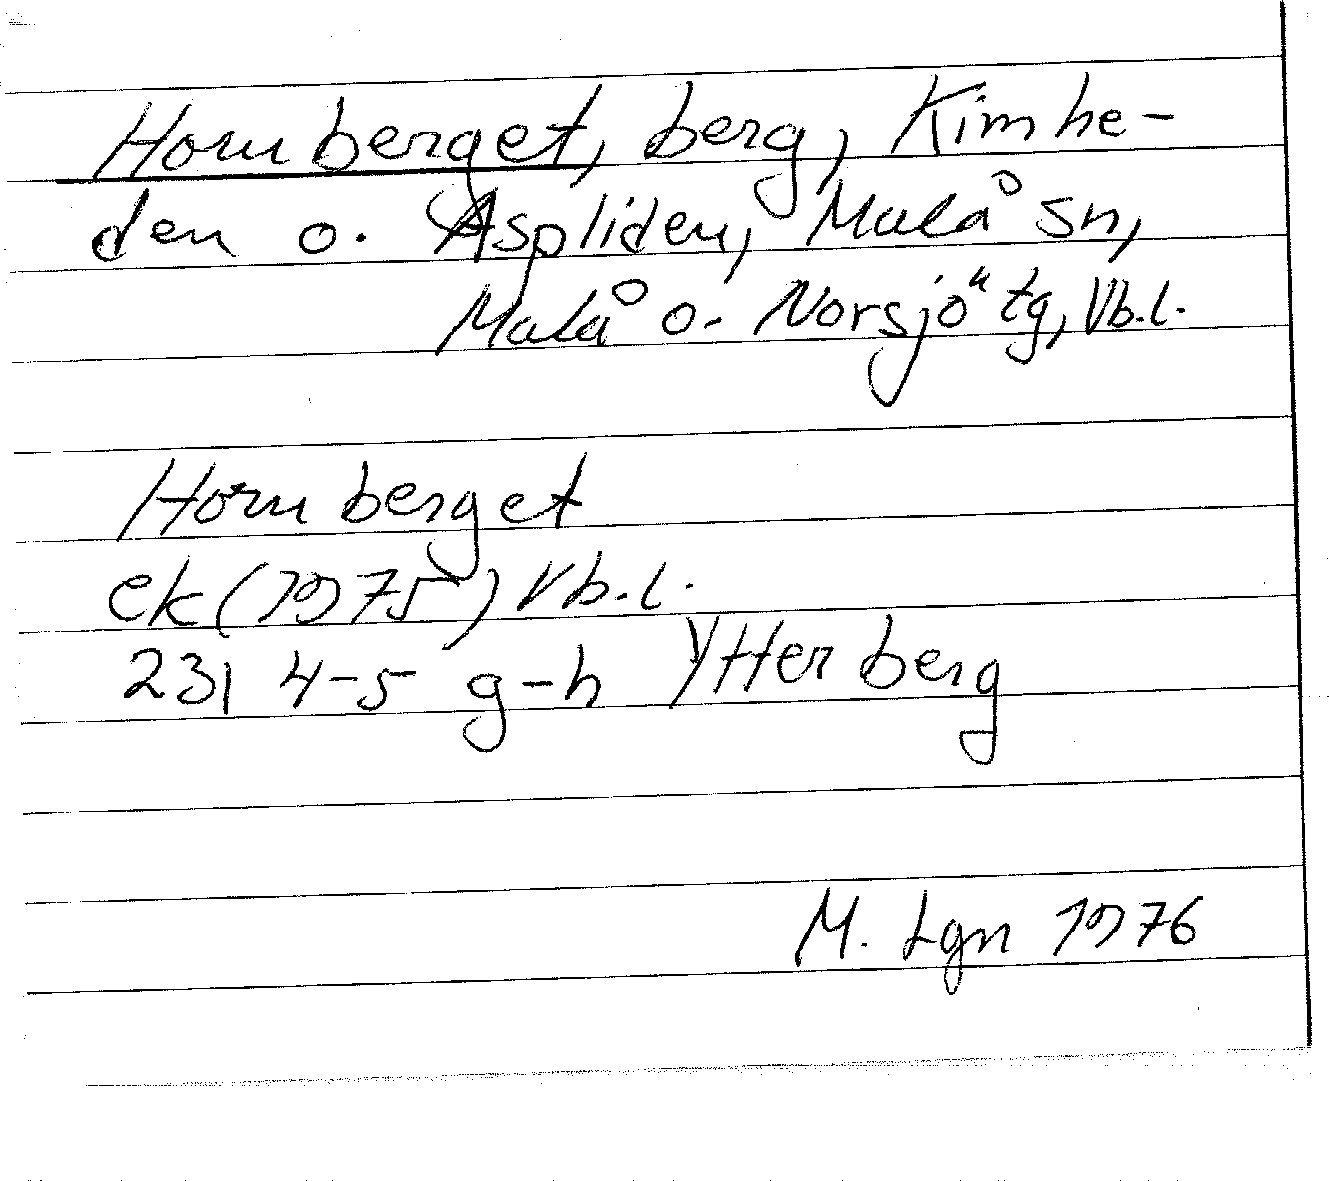 Hornberget, berg, Kimhe-
den o. Aspliden, Malå sn,
Malå o. Norsjö tg, Vb.l.
Hornberget
ek (1975) Vb.l.
231 4-5 g-h Ytterberg
M. Lgn 1976